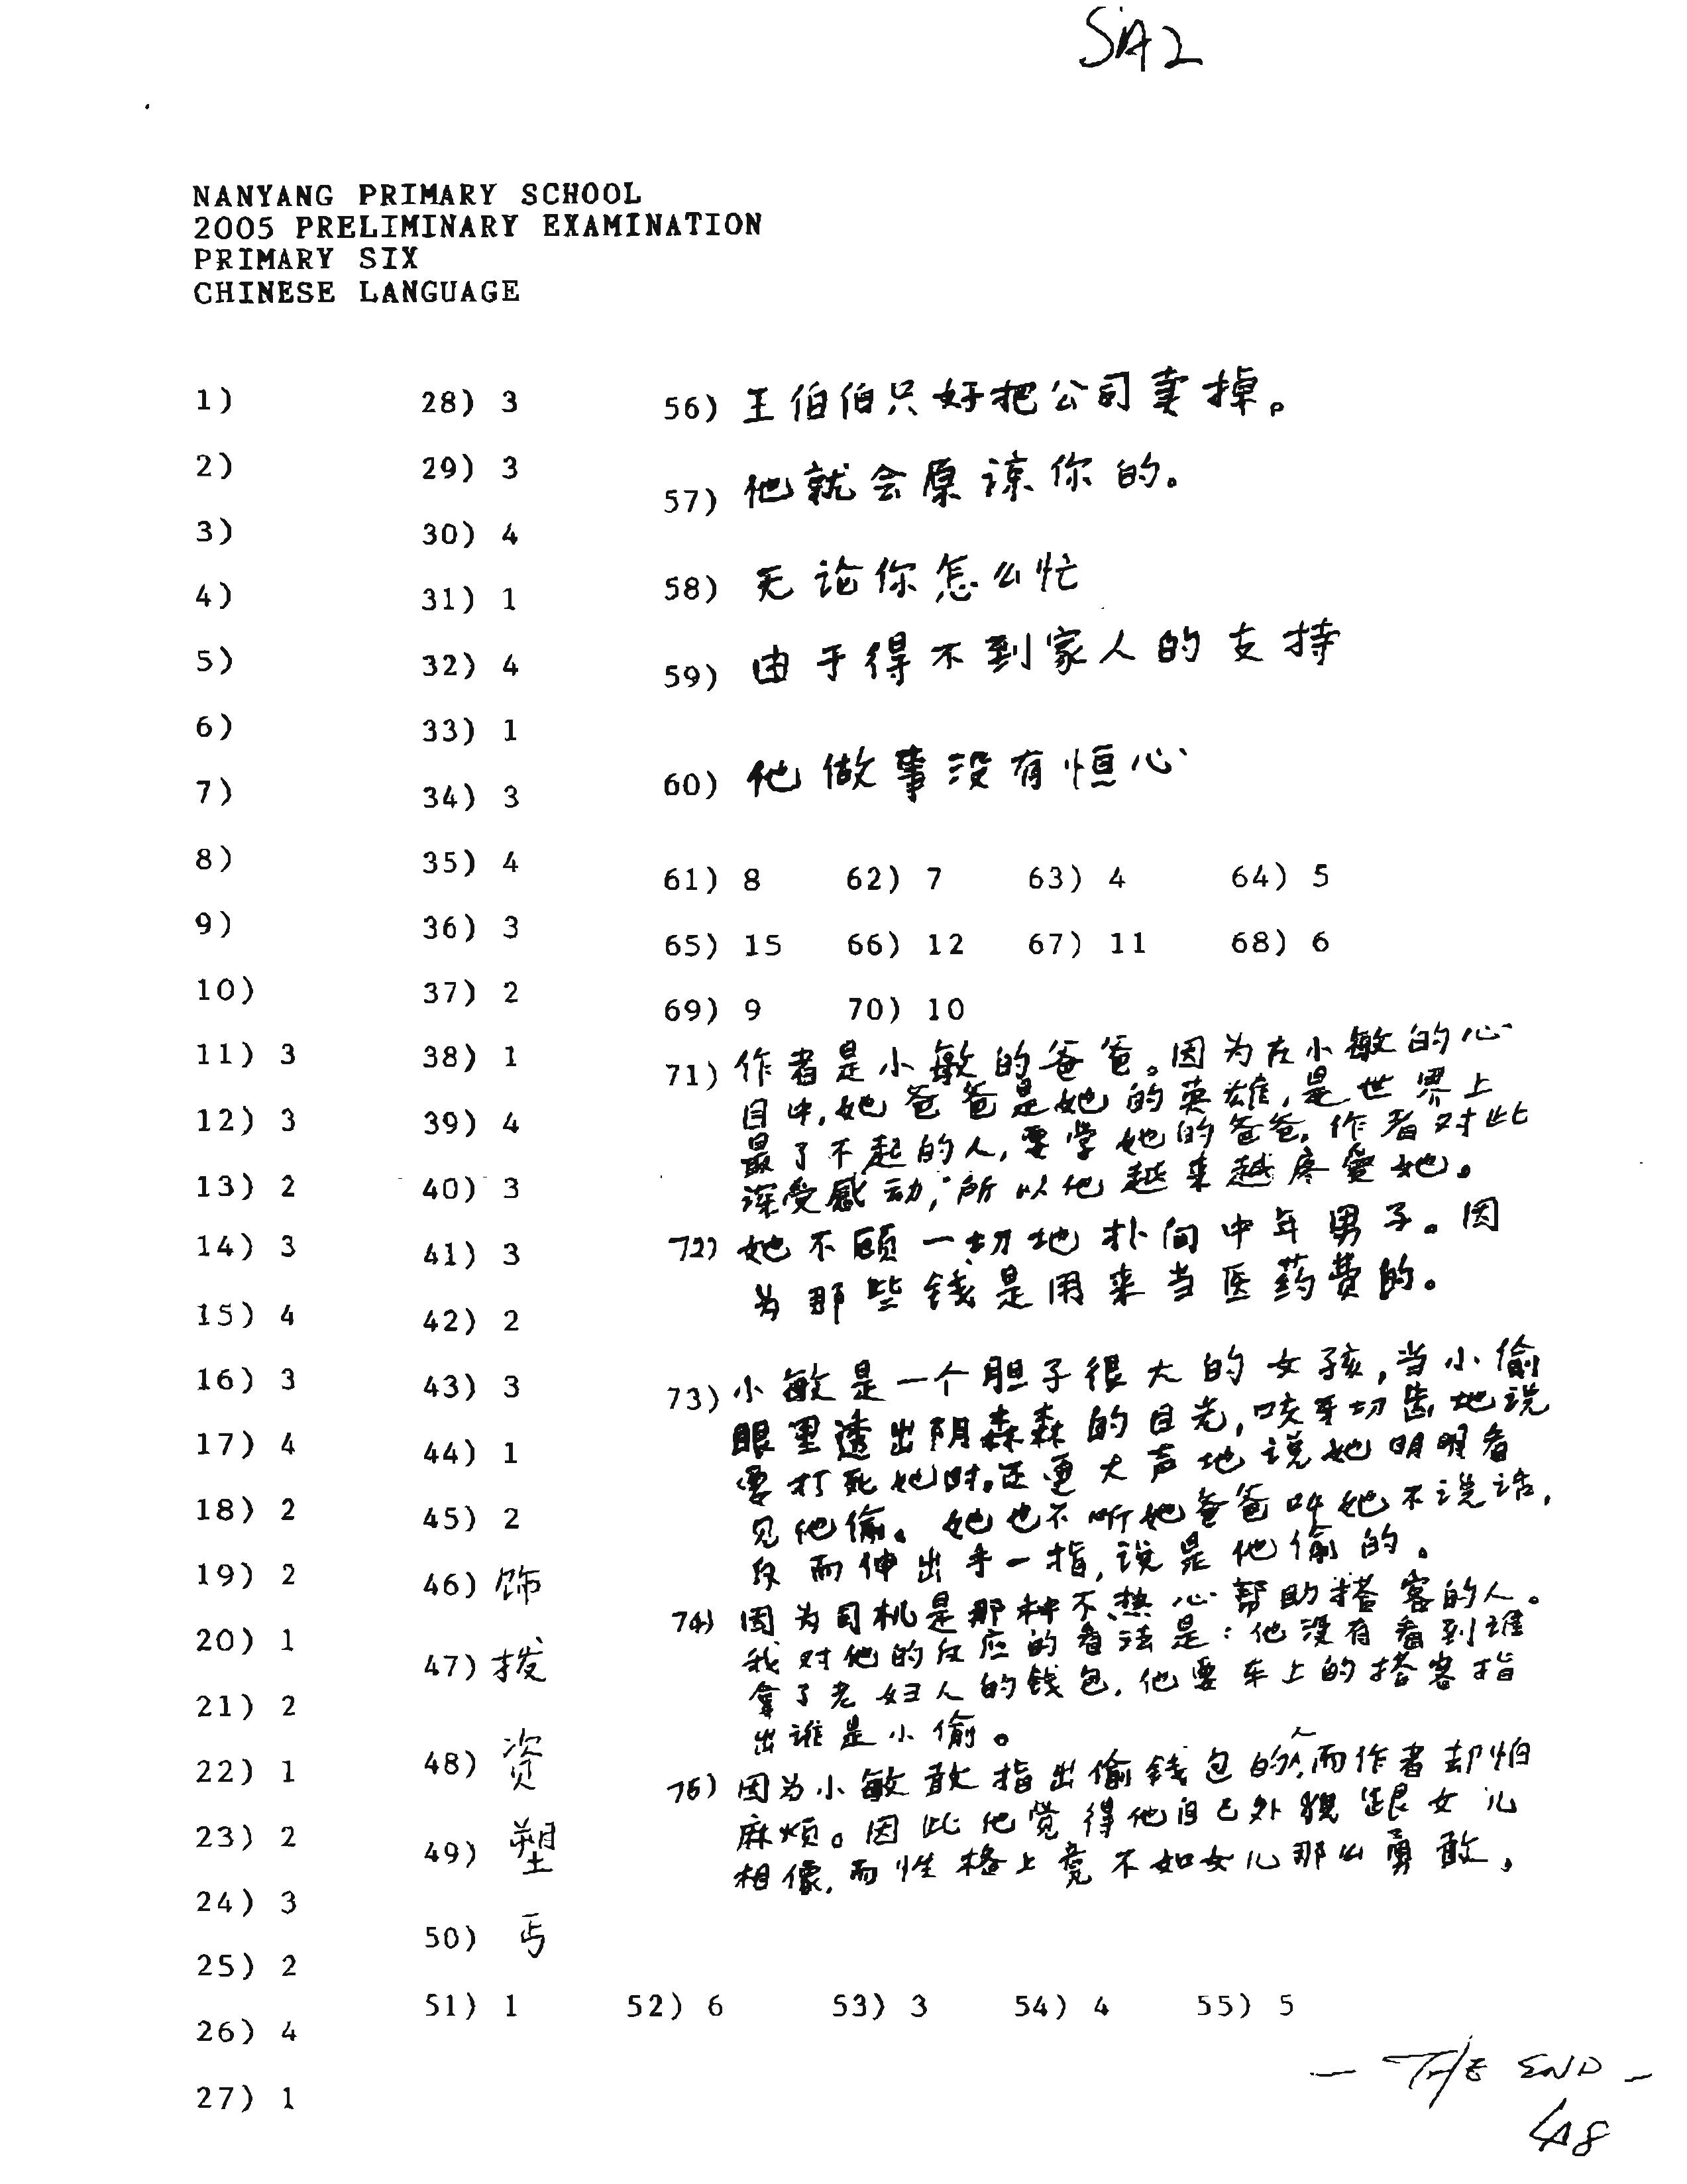 SA2
NANYANG PRIMARY SCHOOL
2005 PRELIMINARY EXAMINATION
PRIMARY SIX
CHINESE LANGUAGE
1)
2)
3)
4)
5)
6)
7)
8)
9)
10)
11) 3
12) 3
13) 2
14) 3
15) 4
16) 3
17) 4
18) 2
19) 2
20) 1
21) 2
22) 1
23) 2
24) 3
25) 2
26) 4
27) 1
28) 3
29) 3
30) 4
31) 1
32) 4
33) 1
34) 3
35) 4
36) 3
37) 2
38) 1
39) 4
40) 3
41) 3
42) 2
43) 3
44) 1
45) 2
46) 饰
47) 拨
48) 资
49) 塑
50) 丐
51) 1 52) 6 53) 3 54) 4 55) 5
56) 王伯伯只好把公司卖掉。
57) 他就会原谅你的。
58) 无论你怎么忙
59) 由于得不到家人的支持
60) 他做事没有恒心
61) 8 62) 7 63) 4 64) 5
65) 15 66) 12 67) 11 68) 6
69) 9 70) 10
71) 作者是小敏的爸爸。因为在小敏的心
目中,她爸爸是她的英雄,是世界上
最了不起的人,要学她的爸爸,作者对此
深受感动,所以他越来越疼爱她。
72) 她不顾一切地扑向中年男子。因
为那些钱是用来当医药费的。
73) 小敏是一个胆子很大的女孩,当小偷
眼里透出阴森森的目光,咬牙切齿地说
要打死她时,还更大声地说她明明看
见他偷。她也不听她爸爸叫她不说话,
反而伸出手一指,说是他偷的。
74) 因为司机是那种不热心帮助搭客的人。
我对他的反应的看法是:他没有看到谁
拿了老妇人的钱包,他要车上的搭客指
出谁是小偷。
75) 因为小敏敢指出偷钱包的人,而作者却怕
麻烦。因此他觉得他自己外貌跟女儿
相像,而性格上竟不如女儿那么勇敢,
- THE END -
48